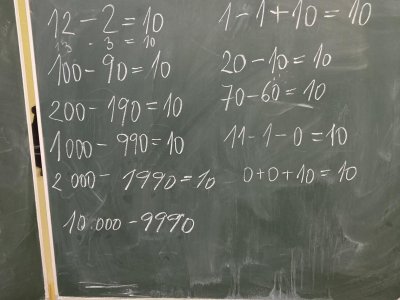 12 - 2 = 10
13 - 3 = 10
100 - 90 = 10
200 - 190 = 10
1000 - 990 = 10
2 000 - 1990 = 10
10 000 - 9990
1 - 1 + 10 = 10
20 - 10 = 10
70 - 60 = 10
11 - 1 - 0 = 10
0 + 0 + 10 = 10